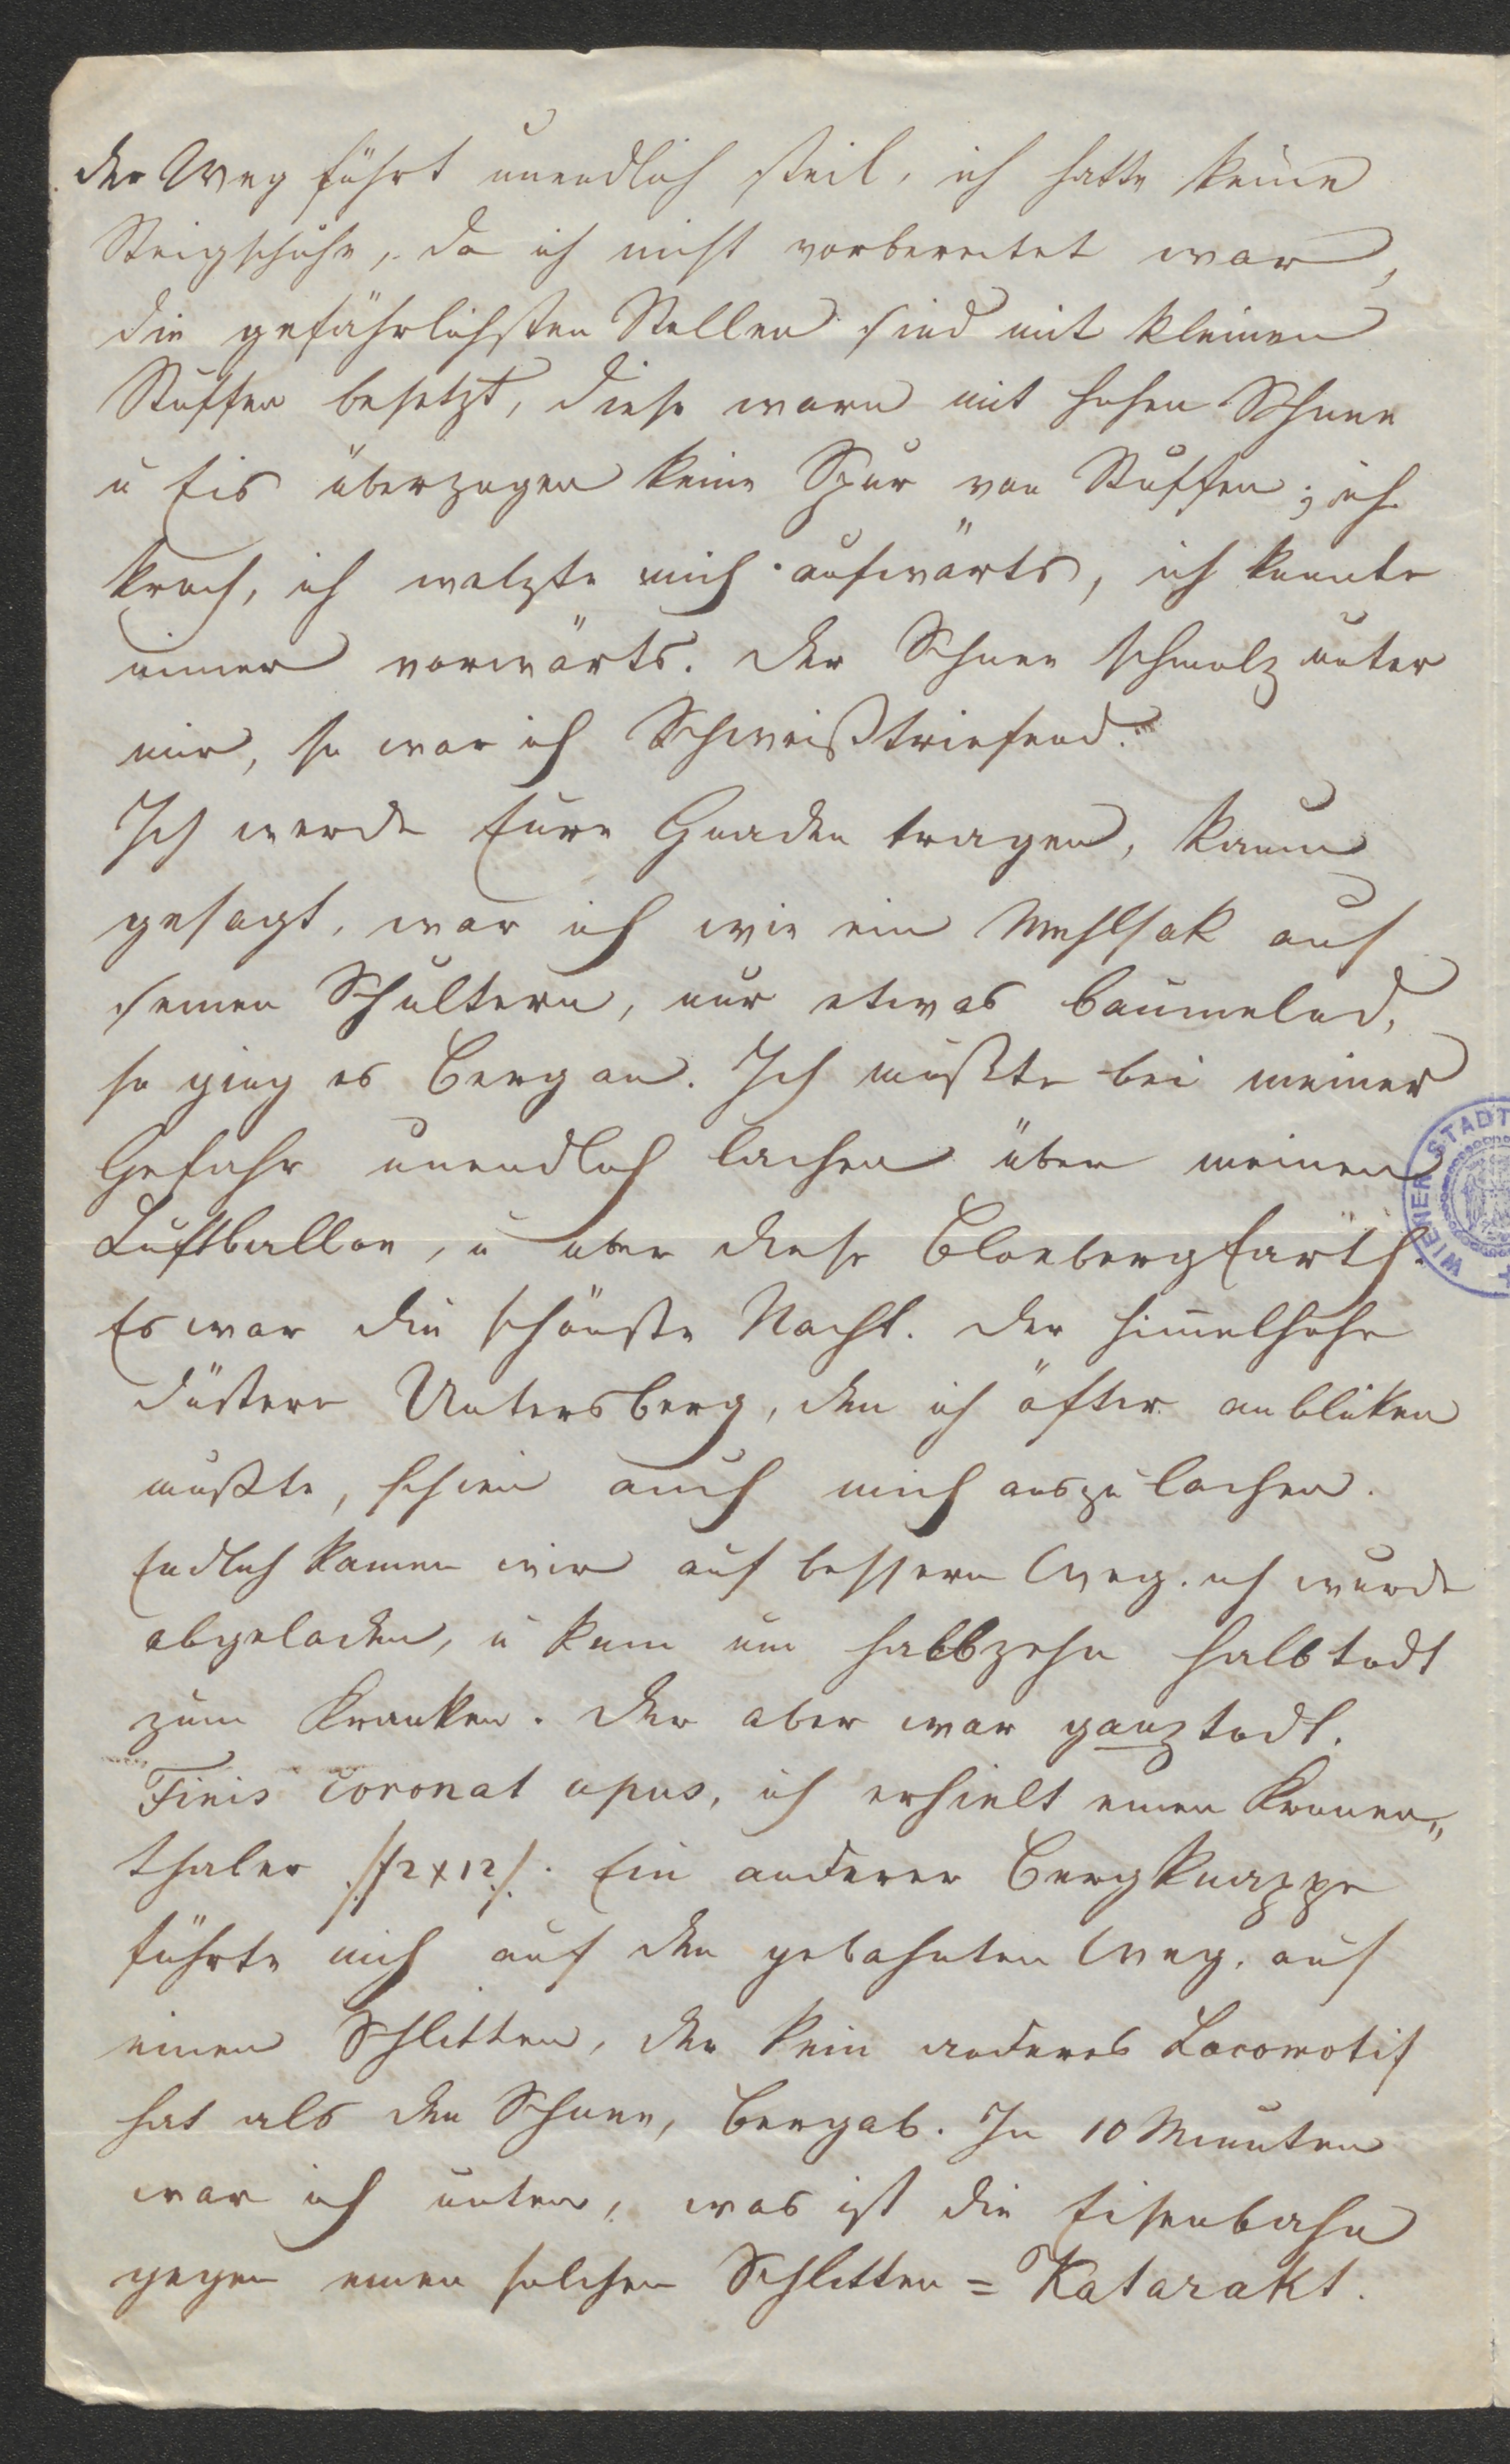 der Weg führt unendlich steil, ich hatte keine
Steigschuhe, da ich nicht vorbereitet war,
die gefährlichsten Stellen sind mit kleinen
Stuffen besetzt, diese waren mit hohen Schnee
u Eis überzogen keine Spur von Stuffen; ich
kroch, ich walzte mich aufwärts, ich konnte
nimer vorwärts. Der Schnee schmolz unter
mir, so war ich Schweißtriefend.
Ich werde Eure Gnaden tragen, kaum
gesagt, war ich wie ein Mehlsak auf
seinen Schultern, nur etwas baumelnd,
so ging es Bergan. Ich mußte bei meiner
Gefahr unendlich lachen über meinen
Luftballon, u über diese
Es war die schönste Nacht. Der himelhohe
düstere Untersberg, den ich öfter anbliken
mußte, schien auch mich auszulachen.
Endlich kamen wir auf bessern Weg. ich wurde
abgeladen, u kam um halbzehn halbtodt
zum Kranken. Der aber war ganz todt.
Finis coronat opus, ich erhielt einen Kronen„
thaler /:f2 x12:/. Ein anderer Bergknappe
führte mich auf den gebahnten Weg, auf
einen Schlitten, der kein anderes Locomotif
hat als den Schnee, bergab. In 10 Minuten
war ich unten, was ist die Eisenbahn
gegen einen solchen Schlitten = Katarakt.
WIENER STADT